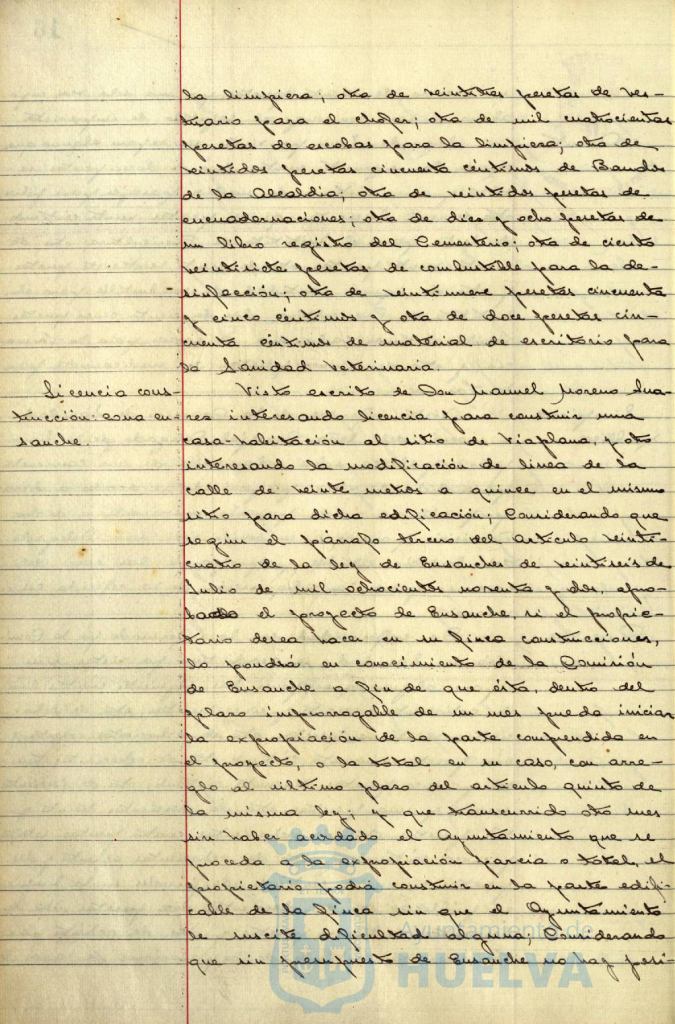 la limpieza; otra de veintitres pesetas de ves-
tuario para el chofer; otra de mil cuatrocientas
pesetas de escobas para la limpieza; otra de
veintidos pesetas cincuenta céntimos de Bandos
de la Alcaldia; otra de veintidos pesetas de
encuadernaciones; otra de diez y ocho pesetas de
un libro registro del Cementerio; otra de ciento
veintisiete pesetas de combustible para la de-
sinfección; otra de veintinueve pesetas cincuenta
y cinco céntimos y otra de doce pesetas cin-
cuenta céntimos de material de escritorio para
la Sanidad Veterinaria.
Licencia cons-
trucción: zona en-
sanche.
Visto escrito de Don Manuel Moreno Sua-
rez interesando licencia para construir una
casa-habitación al sitio de Viaplana, y otro
interesando la modificación de linea de la
calle de veinte metros a quince en el mismo
sitio para dicha edificación; Considerando que
según el párrafo tercero del articulo veinti-
cuatro de la ley de Ensanches de veintiseis de
Julio de mil ochocientos noventa y dos, apro-
bado el proyecto de Ensanche, si el propie-
tario desea hacer en su finca construcciones,
lo pondrá en conocimiento de la Comisión
de Ensanche a fin de que ésta, dentro del
plazo improrrogable de un mes pueda iniciar
la expropiación de la parte comprendida en
el proyecto, o la total en su caso, con arre-
glo al último plazo del articulo quinto de
la misma ley; y que transcurrido otro mes
sin haber acordado el Ayuntamiento que se
proceda a la expropiación parcia o total, el
propietario podrá construir en la parte edifi-
cable de la finca sin que el Ayuntamiento
le suscite dificultad alguna; Considerando
que sin presupuesto de Ensanche no hay posi-
HUELVA